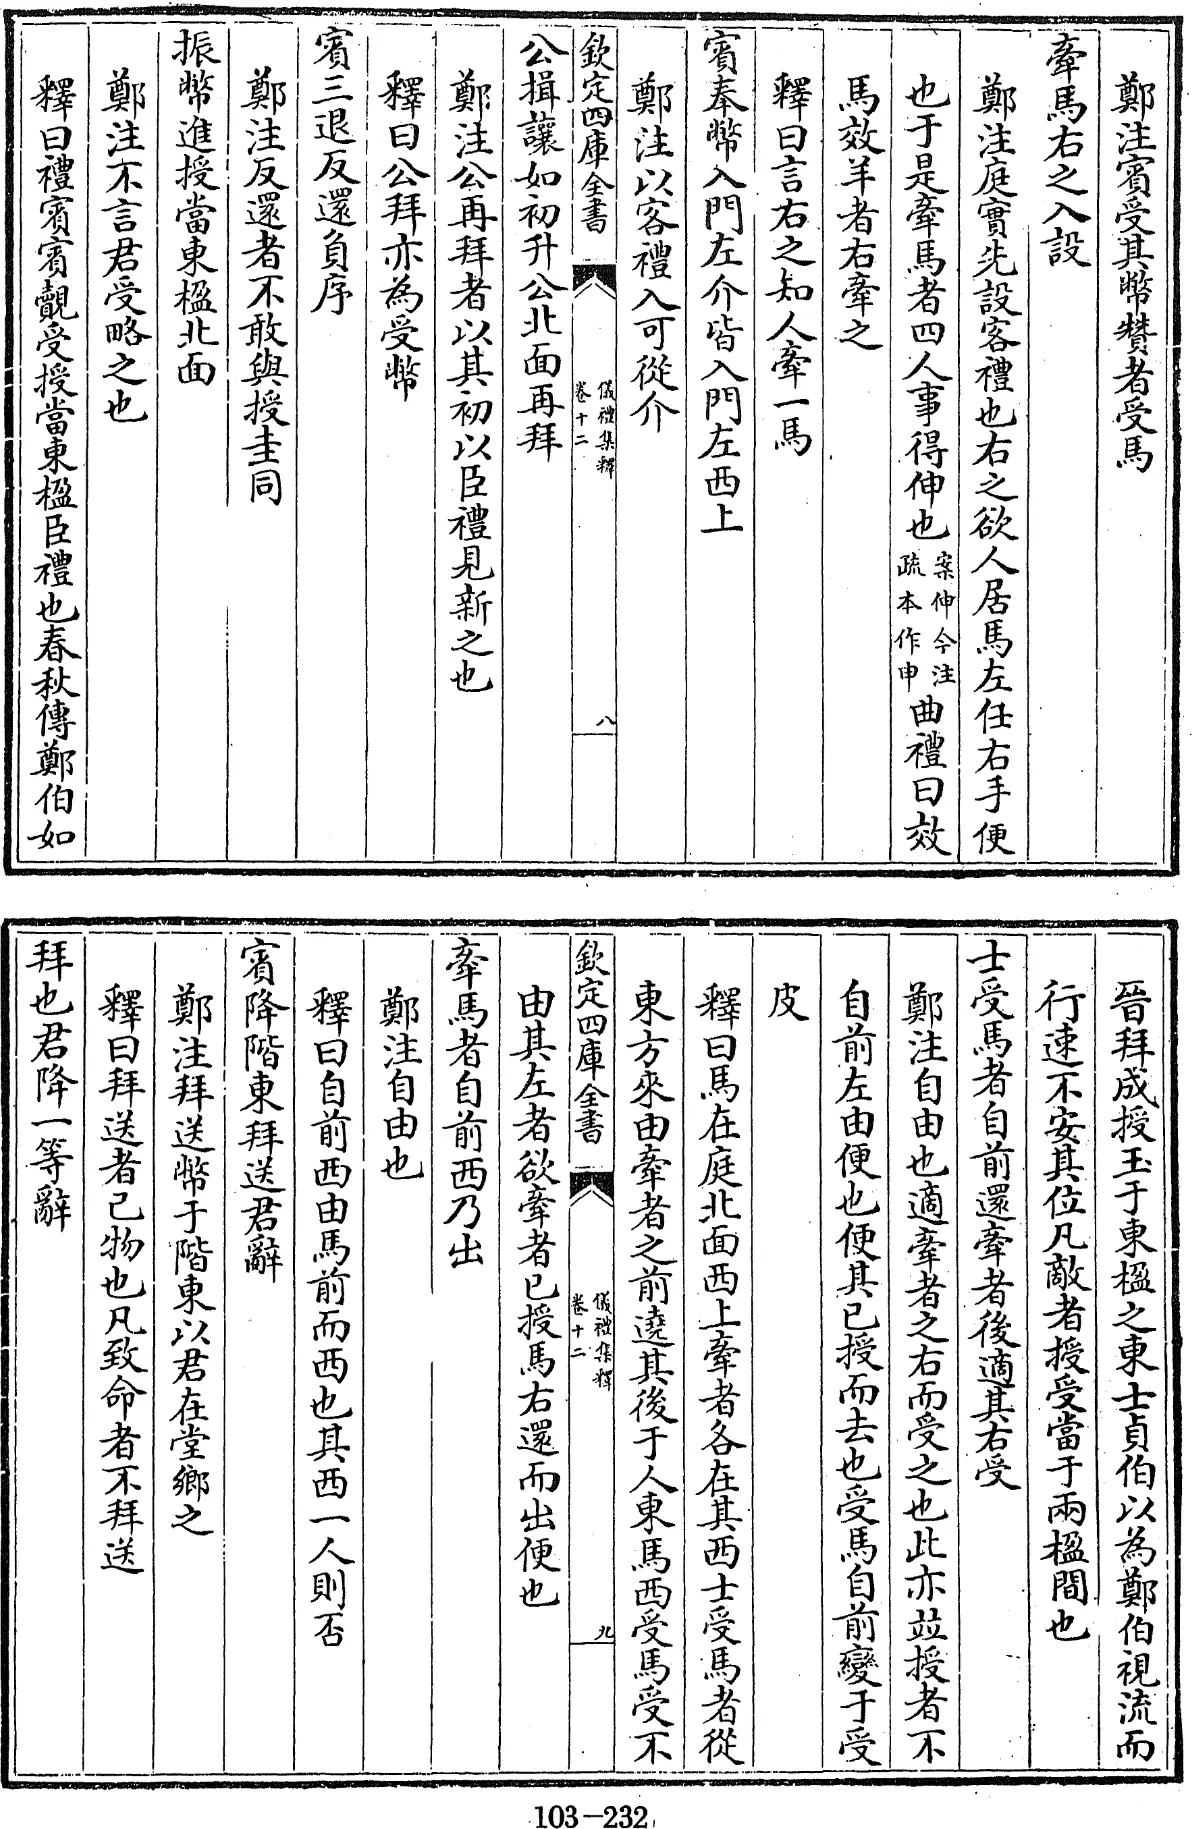 鄭注賓受其幣贊者受馬
牽馬右之入設
鄭注庭實先設客禮也右之欲人居馬左任右手便
也于是牽馬者四人事得伸也案伸今注疏本作申曲禮曰效
馬效羊者右牽之
釋曰言右之知人牽一馬
賓奉幣入門左介皆入門左西上
鄭注以客禮入可從介
欽定四庫全書 儀禮集釋 卷十二 八
公揖讓如初升公北面再拜
鄭注公再拜者以其初以臣禮見新之也
釋曰公拜亦為受幣
賓三退反還負序
鄭注反還者不敢與授圭同
振幣進授當東楹北面
鄭注不言君受略之也
釋曰禮賓賓覿受授當東楹臣禮也春秋傳鄭伯如
晉拜成授玉于東楹之東士貞伯以為鄭伯視流而
行速不安其位凡敵者授受當于兩楹間也
士受馬者自前還牽者後適其右受
鄭注自由也適牽者之右而受之也此亦竝授者不
自前左由便也便其已授而去也受馬自前變于受
皮
釋曰馬在庭北面西上牽者各在其西士受馬者從
東方來由牽者之前遶其後于人東馬西受馬受不
由其左者欲牽者已授馬右還而出便也
欽定四庫全書 儀禮集釋 卷十二 九
牽馬者自前西乃出
鄭注自由也
釋曰自前西由馬前而西也其西一人則否
賓降階東拜送君辭
鄭注拜送幣于階東以君在堂鄉之
釋曰拜送者己物也凡致命者不拜送
拜也君降一等辭
103-232